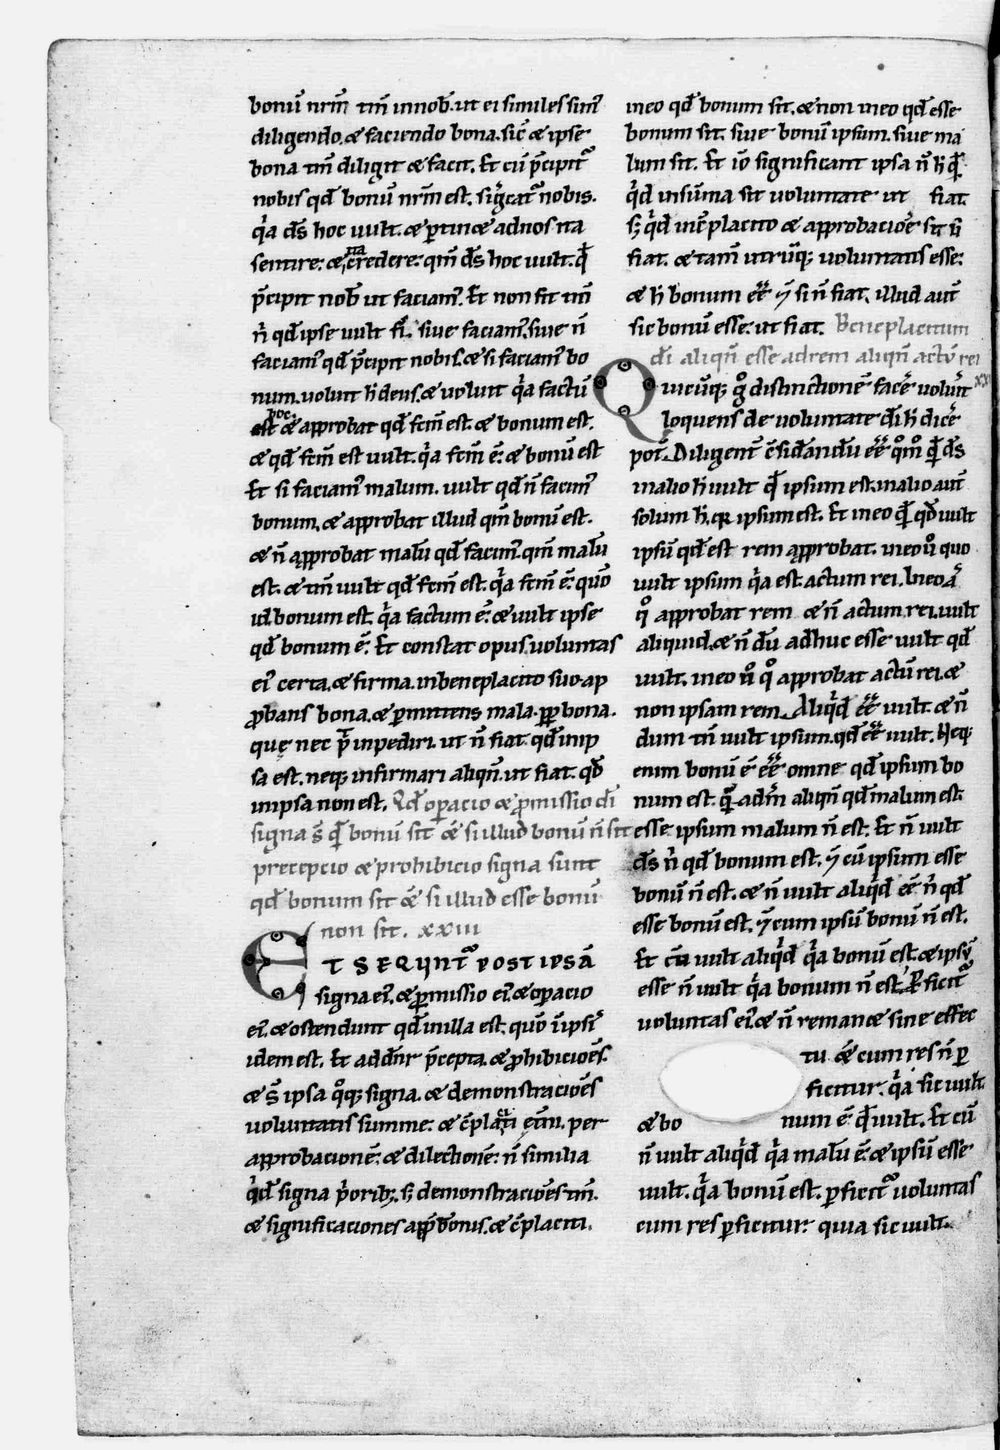 bonū nr̄m tm̄ in nob̄. ut ei similes sim᷒
diligendo. & faciendo bona. sic̄ & ipse
bona tm̄ diligit & facit. Et cū p̄cipit᷒
nobis qd̄ bonū nr̄m est. sig᷒cat᷒ nobis.
q̇a ds̄ hoc uult. & ꝑtin& ad nos ita
sentire: & ita credere: qm̄ ds̄ hoc uult. qd̄
p̄cipit nob̄ ut faciam᷒. Et non fit tm̄
n̄ qd̄ ipse uult fī. siue faciam᷒. siue n̄
faciam᷒ qd̄ p̄cipit nobis. & si faciam᷒ bo
num. uoluit h̄ deus. & uoluit q̇a factū
hoc & approbat qd̄ fcm̄ est. & bonum est.
& qd̄ fcm̄ est uult. q̇a fcm̄ ē: & bonū est
Et si faciam᷒ malum. uult qd̄ n̄ facim᷒
bonum, & approbat illud qm̄ bonū est.
& n̄ approbat malū qd̄ facim᷒. qm̄ malū
est. & tm̄ uult qd̄ fcm̄ est. q̇a fcm̄ ē. quō
id bonum est. q̇a factum ē: & uult ipse
qd̄ bonum ē: Et constat opus. uoluntas
ei᷒ certa. & firma. in beneplacito suo. ap
ꝓbans bona. & ꝑmittens mala. ꝓp bona.
quę nec p̄t inpediri. ut n̄ fiat. qd̄ in ip
sa est. neqꝫ infirmari aliqn̄. ut fiat. qd̄
in ipsa non est. Qd̄ oꝑacio & ꝓmissio di̅
signa s̄ qd̄ bonū sit ēē si illud bonū n̄ sit
precepcio & prohibicio signa sunt
qd̄ bonum sit ēē si illud esse bonū
non sit. xxiii
ET SEQUNT᷒ POST IPSĀ
signa ei᷒. & ꝓmissio ei᷒. & oꝑacio
ei᷒. & ostendunt qd̄ in illa est. quō in ipsi᷒
idem est. Et addn̄r p̄cepta. & ꝓhibiciōes.
& s̄ ipsa q̊qꝫ signa. & demonstraciōes
uoluntatis summe: & c̄placiti et̄ni. per
approbacionē: & dilectionē: n̄ similia
q̇dē signa ṗoribꝫ. sꝫ demonstraciōes tm̄.
& significaciones app̄bonis. & c̄placiti.
in eo qd̄ bonum sit. & non in eo qd̄ esse
bonum sit. siue bonū ipsum. siue ma
lum sit. Et iō significant ipsa n̄ h̄ qd̄
q̇d in sūma sit uoluntate ut fiat.
sꝫ q̇d in c̄placito & approbaciōe sit si
fiat. & tam̄ utrūqꝫ uoluntatis esse:
& h̄ bonum ēē ꝙ si n̄ fiat. illud aut̄
sic bonū esse: ut fiat. Beneplacitum
di̅ aliqn̄ esse ad rem aliqn̄ actū rei
xxiiii
Quicūqꝫ g̊ distinctionē facē᷒ uolūit
loquens de uoluntate di̅ h̄ dicē᷒
pot̄. Diligent̄ c̄sid̄andū ēē. q̊m̊ qd̄ ds̄
malo h̄ uult qd̄ ipsum est. malo aut̄
solum h̄. qꝛ ipsum est. Et in eo qd̄ qd̄ uult
ipsū qd̄ est rem approbat. in eo ů quo
uult ipsum q̇a est actum rei. In eo ā
q̊ approbat rem & n̄ actum rei. uult
aliquid. & n̄ dū adhuc esse uult qd̄
uult. in eo ů q̊ approbat actū rei. &
non ipsam rem. Aliq̇d ēē uult. & n̄
dum tn̄ uult ipsum. qd̄ ēē uult. Neqꝫ
enim bonū ē ēē omne qd̄ ipsum bo
num est. qm̄ ad rm̄ aliqn̄ qd̄ malum est.
esse ipsum malum n̄ est. Et n̄ uult
ds̄ n̄ qd̄ bonum est. ꝙ cū ipsum esse
bonū n̄ est. & n̄ uult aliq̇d ēē n̄ qd̄
esse bonū est. ꝙ cum ipsū bonū n̄ est.
Et cū uult aliq̇d q̇a bonū est. & ipsū
esse n̄ uult q̇a bonum n̄ est. ꝑficit᷒
uoluntas ei᷒. & n̄ reman& sine effec
tu. & cum res n̄ ꝑ
ficitur. q̇a sic uult.
& bonum ē qd̄ uult. Et cū
n̄ uult aliq̇d q̇a malū ē. & ipsū esse
uult. q̇a bonū est. ꝑficit᷒ uoluntas
cum res ꝑficitur quia sic uult.